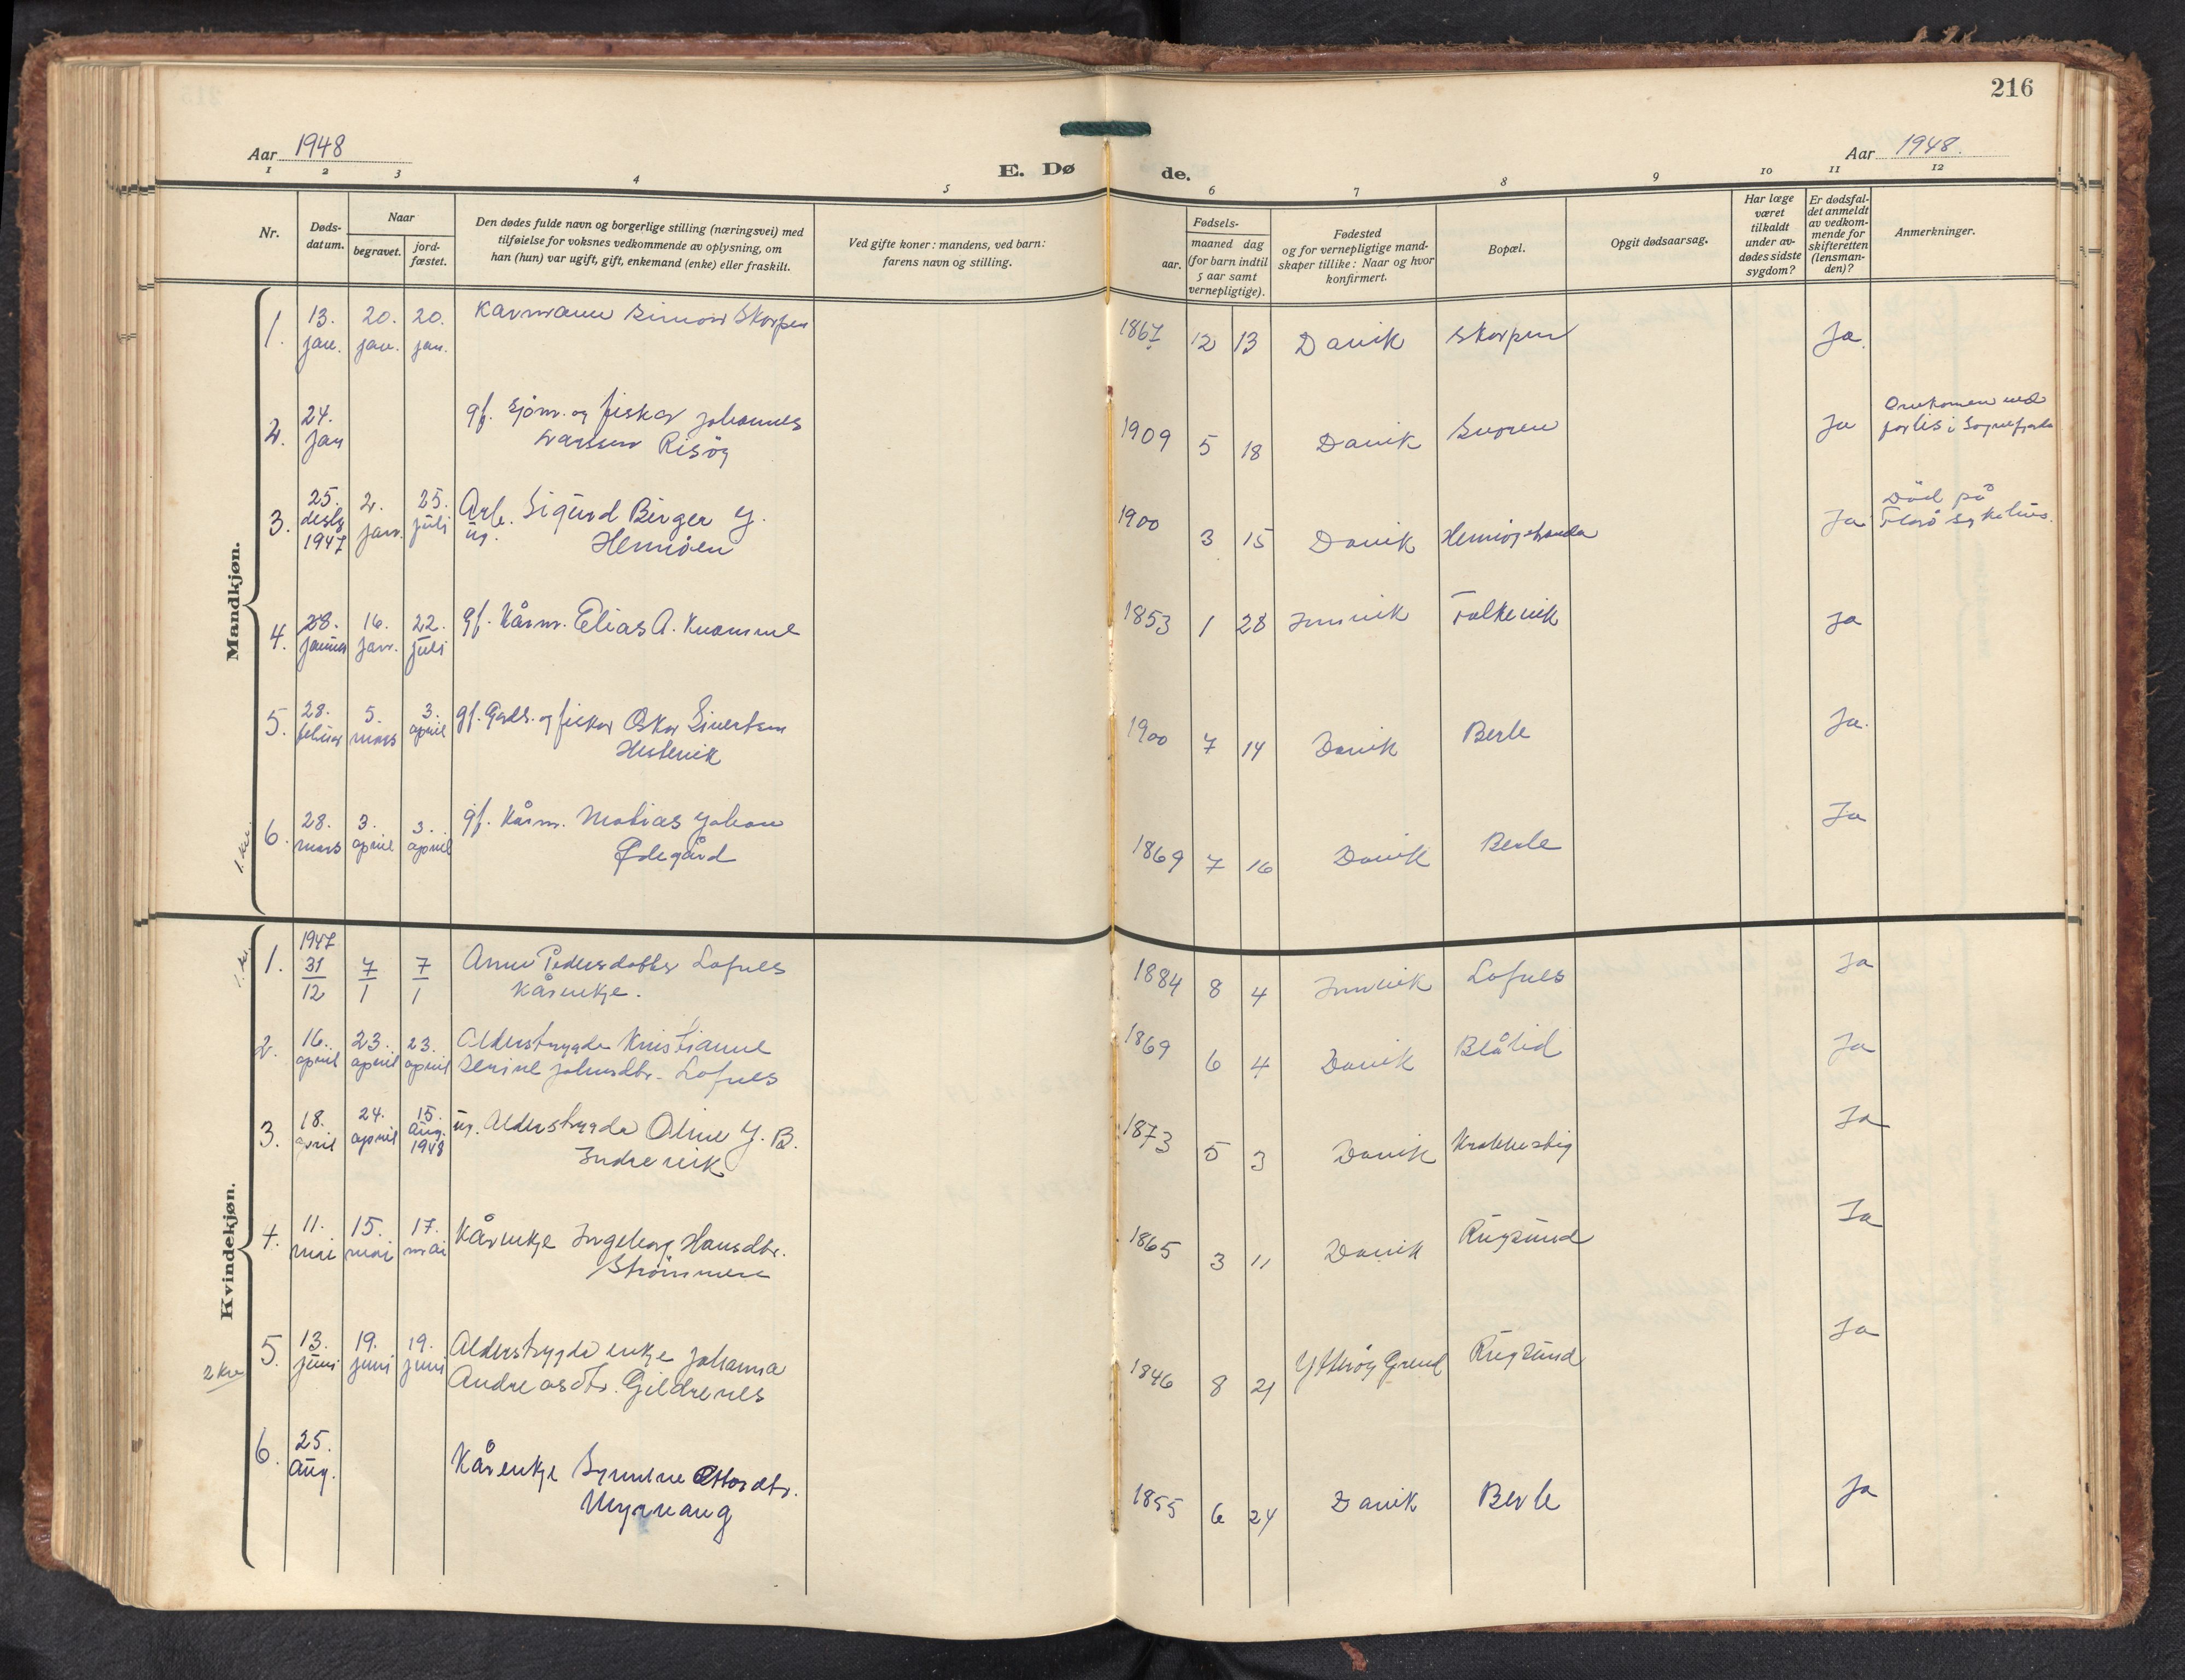 216
Aar 1948
Aar 1948.
E. Dø de.
1 2 3 4 5 6 7 8 9 10 11 12
Nr.
Døds-
datum.
Naar
begravet.
jord-
fæstet.
Den dødes fulde navn og borgerlige stilling (næringsvei) med
tilføielse for voksnes vedkommende av oplysning, om
han (hun) var ugift, gift, enkemand (enke) eller fraskilt.
Ved gifte koner: mandens, ved barn:
farens navn og stilling.
Fødsels-
aar.
maaned dag
(for barn indtil
5 aar samt
vernepligtige).
Fødested
og for vernepligtige mand-
skaper tillike: Naar og hvor
konfirmert.
Bopæl.
Opgit dødsaarsag.
Har læge
været
tilkaldt
under av-
dødes sidste
sygdom?
Er dødsfal-
det anmeldt
av vedkom-
mende for
skifteretten
(lensman-
den)?
Anmerkninger.
Mandkjøn.
1. 13. jan. 20. jan. 20. jan. Kårmann Simon Skorpen 1867 12 13 Davik Skorpen Ja.
2. 24. jan gf. sjøm. og fisker Johannes
Larssen Risøy 1909 5 18 Davik Ja
Omkomen ved
forlis i Sognefjorden
3. 25. desbr 1947 2. jan. 25. juli Arb. Sigurd Birger J.
ug. Hennøen 1900 3 15 Davik Hennøystranda Ja
Död på
Florø sykehus.
4. 28. januar 16. jan. 22. juli gf. Kårm. Elias A. Kvamme 1853 1 28 Innvik Falkevik Ja
5. 28. februar 5. mars 3. april gf. Gards. og fisker Oskar Sivertsen
Hestevik 1900 7 14 Davik Berle Ja.
1. kv. 6. 28. mars 3. april 3. april gf. Kårm. Matias Johan
Ødegård 1869 7 16 Davik Berle Ja
Kvindekjøn.
1. kv. 1. 1947 31/12 7/1 7/1 Anne Pedersdotter Lofnes
Kårenkje. 1884 8 4 Innvik Lofnes Ja
2. 16. april 23. april 23. april Alderstrygda Kristianne
Serine Johnsdtr. Lofnes 1869 6 4 Davik Blålid Ja
3. 18. april 24. april 15. aug. 1948 ug. Alderstrygda Oline J. B.
Indrevik 1873 5 3 Davik Ja
4. 11. mai 15. mai 17. mai Kårenkje Ingeborg Hansdtr.
Strømmen 1865 3 11 Davik Rugsund Ja
2 kv 5. 13. juni 19. juni 19. juni Alderstrygda enkje Johanna
Andreasdtr. Gildrenes 1846 8 21 Ytterøy Grend Rugsund Ja
6. 25. aug. Kårenkje Synneve Ottosdtr.
Myrvang 1855 6 24 Davik Berle Ja